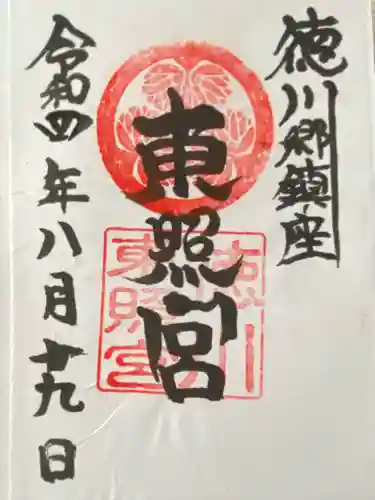 徳川郷鎮座
東照宮
令和四年八月十九日
徳川
東照宮